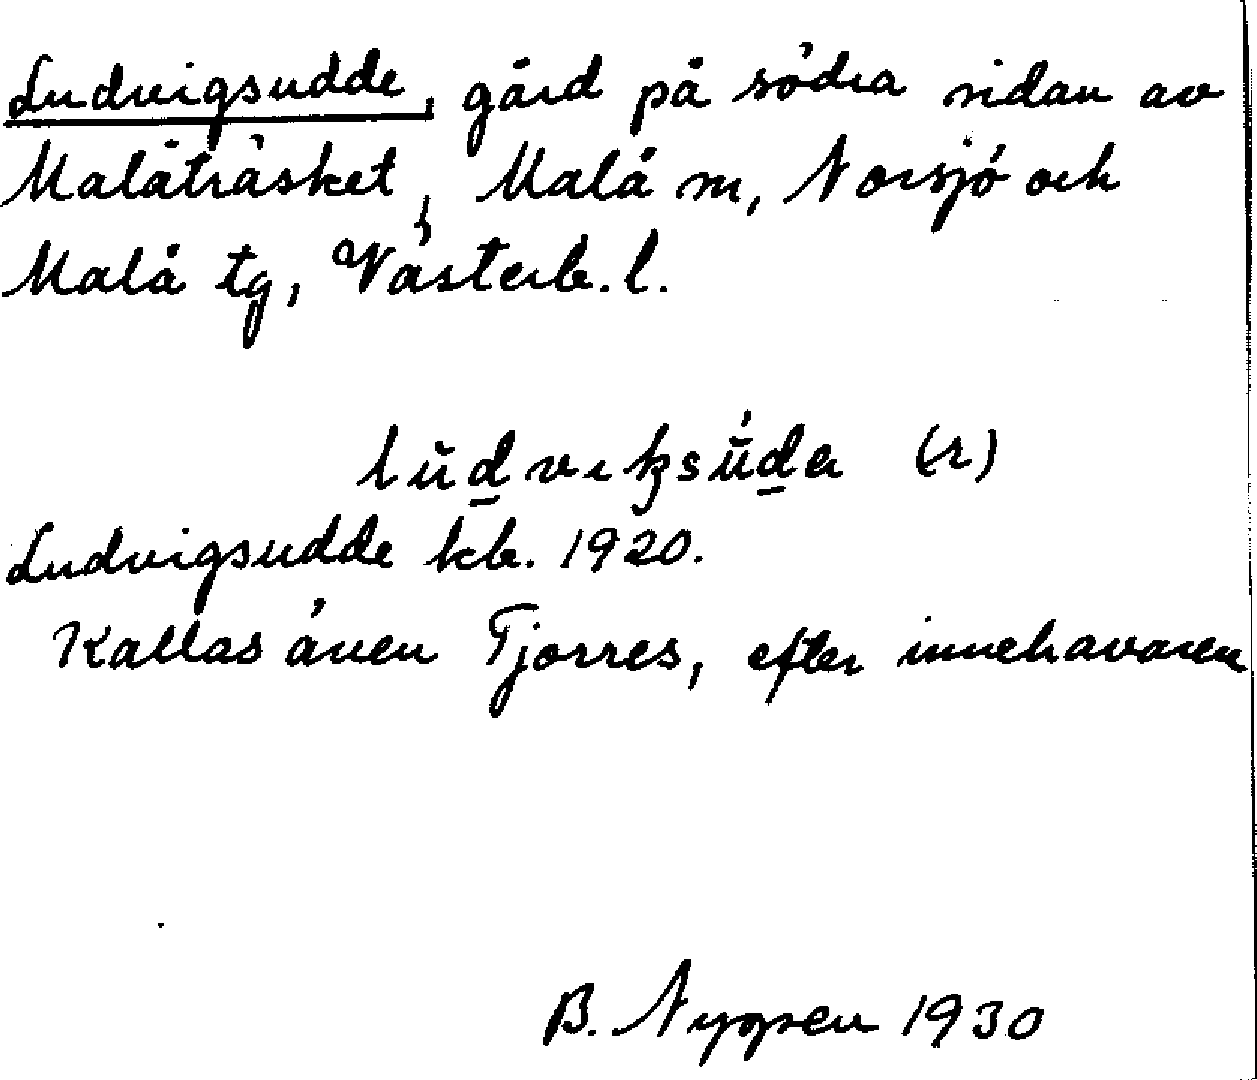 Ludvigsudde, gård på södra sidan av
Malåträsket, Malå sn, Norsjö och
Malå tg, Västerb. l.
lŭdvıksŭ́da (r)
Ludvigsudde kb. 1920.
Kallas även Tjorres, efter innehavaren
B. Nygren 1930